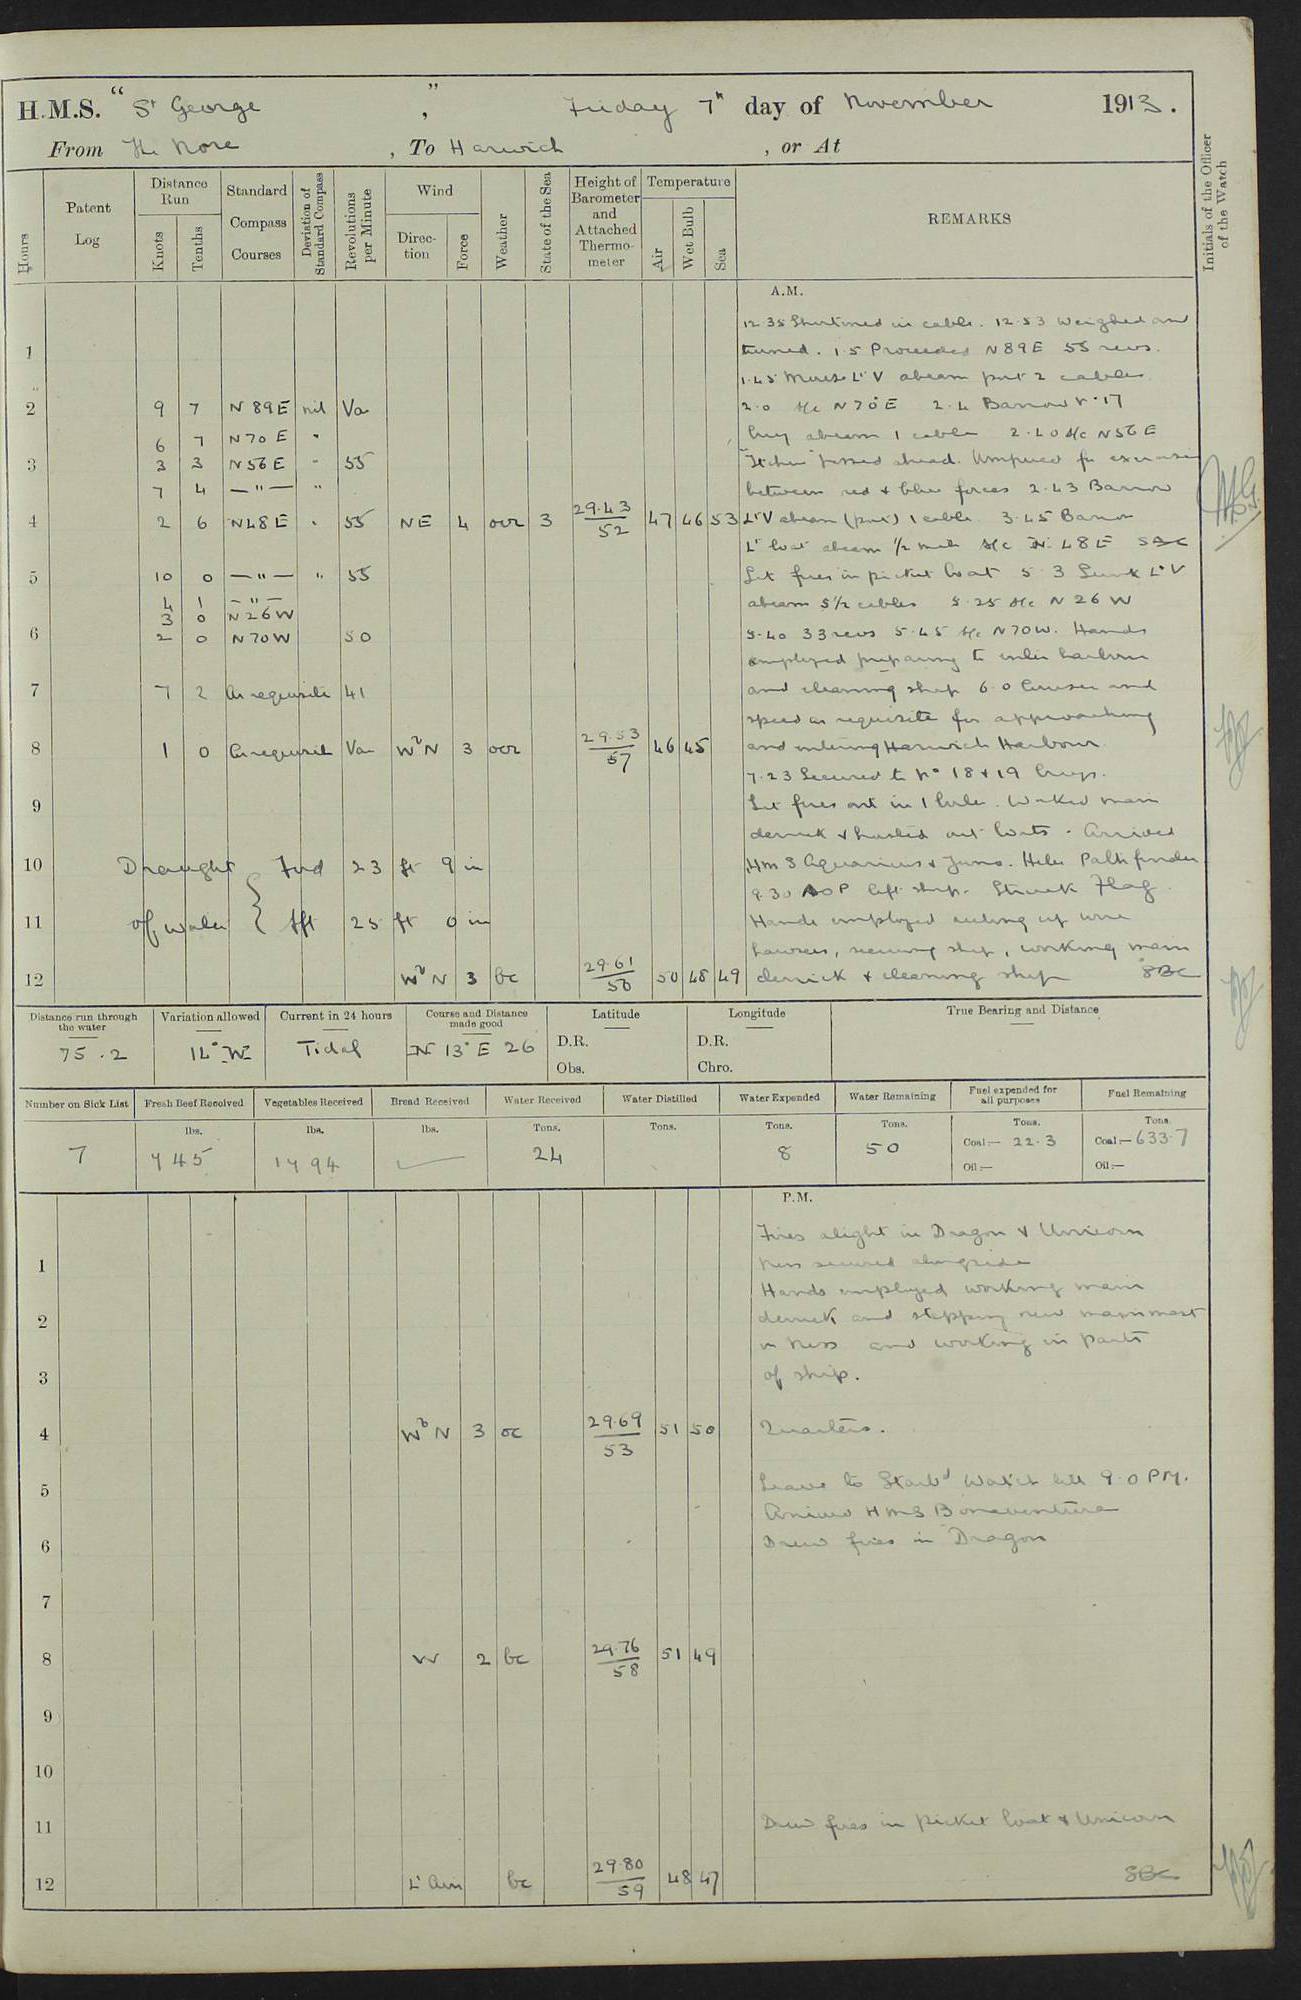 H.M.S. "St George", Friday 7th day of November 1913.
From The Nore, To Harwich, or At
Hours
Patent Log
Distance Run
Knots
Tenths
Standard Compass Courses
Deviation of Standard Compass
Revolutions per Minute
Wind
Direction
Force
Weather
State of the Sea
Height of Barometer and Attached Thermometer
Temperature
Air
Wet Bulb
Sea
REMARKS
Initials of the Officer of the Watch
A.M.
12.35 Shortened in cable. 12.53 Weighed and
1 turned. 1.5 Proceeded N89E 55 revs.
1.45 Mouse Lt V abeam port 2 cables
2 9 7 N89E nil Va 2.0 A/c N70°E 2.4 Barrow No 17
6 7 N70E " buoy abeam 1 cable 2.40 A/c N56E
3 3 3 N56E " 55 "Itchen" passed ahead. for exercise
7 4 — " — " between red & blue forces 2.43 Barrow
4 2 6 N48E " 55 NE 4 ocr 3 29.43/52 47 46 53 Lt V abeam (port) 1 cable 3.45 Barrow
Lt boat abeam 1/2 mile A/c N 48E SBC
5 10 0 — " — " 55 Lit fires in picket boat 5.3 Sunk Lt V
4 1 — " — abeam 5 1/2 cables 5.25 A/c N 26 W
3 0 N26W
6 2 0 N70W 50 5.40 33 revs 5.45 A/c N70W. Hands
employed preparing to enter harbour
7 7 2 As requisite 41 and cleaning ship 6.0 Courses and
speed as requisite for approaching
8 1 0 As requisite Va WbN 3 ocr 29.53/57 46 45 and entering Harwich Harbour.
7.23 Secured to No 18 & 19 buoys.
9 Let fires out in 1 boiler. Worked main
derrick & hoisted out boats. Arrived
10 Draught Fwd 23 ft 9 in HMS Aquarius & Juno. Hebe Pathfinder
9.30 left ship. Struck Flag.
11 of water Aft 25 ft 0 in Hands employed reeling up wire
hawsers, securing ship, working main
12 WbN 3 bc 29.61/56 50 48 49 derrick & cleaning ship SBC
Distance run through the water
75.2
Variation allowed
14° W
Current in 24 hours
Tidal
Course and Distance made good
N 13° E 26
Latitude
D.R.
Obs.
Longitude
D.R.
Chro.
True Bearing and Distance
Number on Sick List
7
Fresh Beef Received
lbs.
745
Vegetables Received
lbs.
1794
Bread Received
lbs.
Water Received
Tons.
24
Water Distilled
Tons.
Water Expended
Tons.
8
Water Remaining
Tons.
50
Fuel expended for all purposes
Tons.
Coal:— 22.3
Oil:—
Fuel Remaining
Tons.
Coal:— 633.7
Oil:—
P.M.
Fires alight in Dragon & Unicorn
1 Ness secured alongside
Hands employed working main
2 derrick and stepping new mainmast
in Ness and working in parts
3 of ship.
4 WbN 3 bc 29.69/53 51 50 Quarters.
5 Leave to Starbd Watch till 9.0 PM.
Arrived HMS Bonaventure
6 Drew fires in Dragon
7
8 W 2 bc 29.76/58 51 49
9
10
11 Drew fires in picket boat & Unicorn
12 Lt Airs bc 29.80/59 48 47 SBC